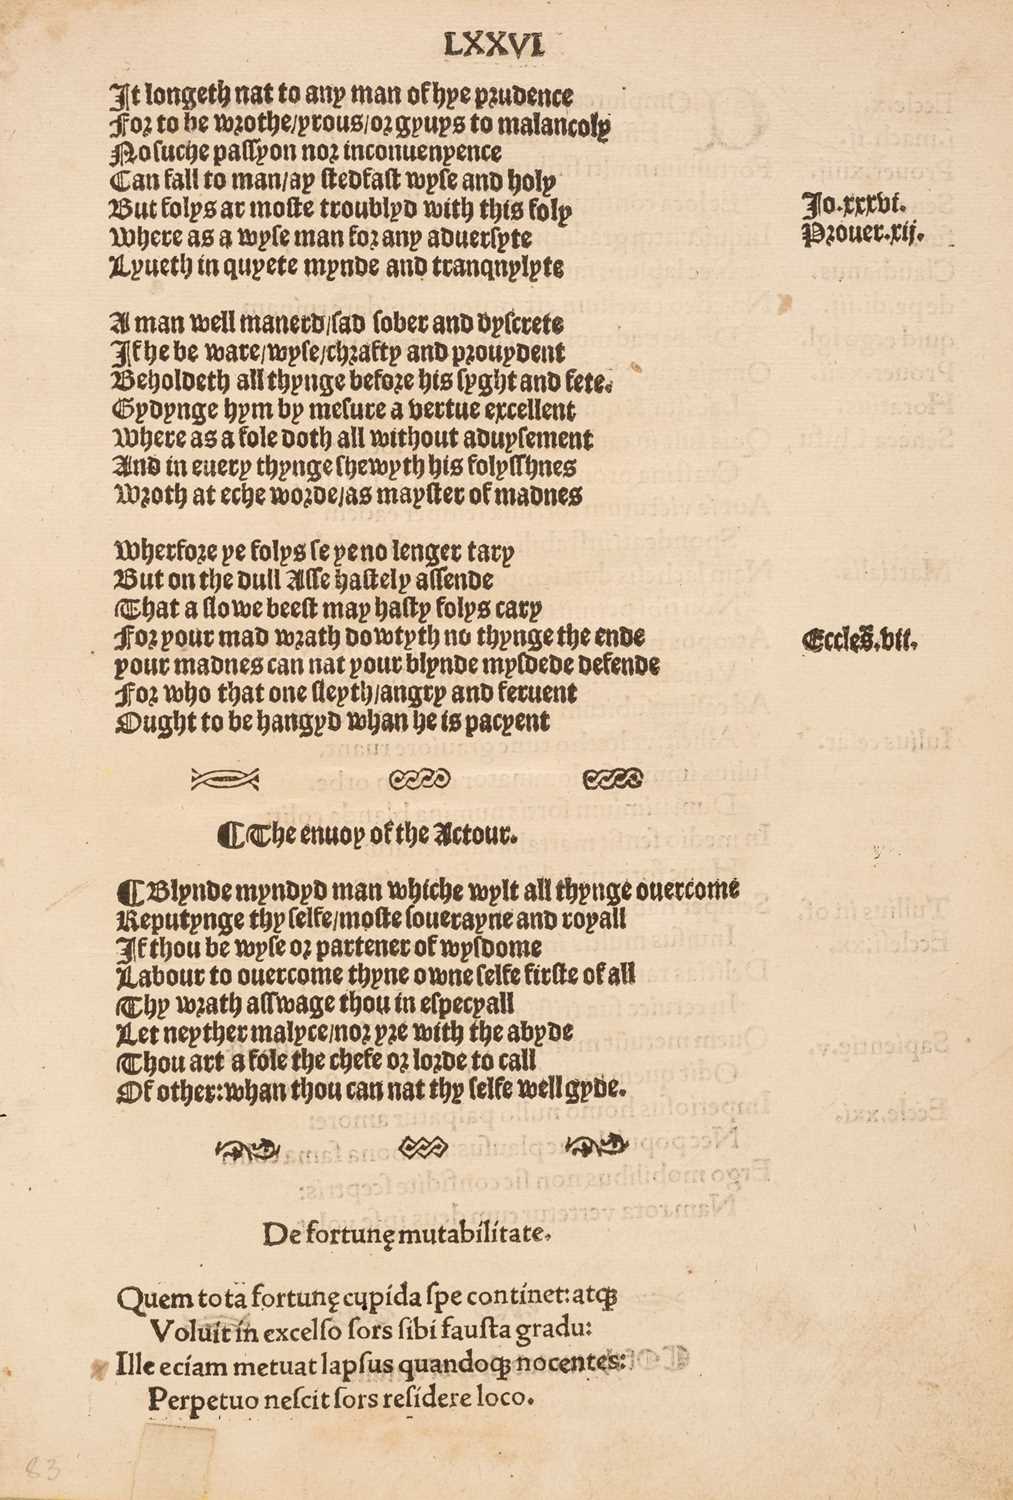 LXXVI
It longeth nat to any man of hye prudence
For to be wrothe/yrous/or gyuys to malancoly
No suche passyon nor inconuenyence
Can fall to man/ay stedfast wyse and holy
But folys ar moste troublyd with this foly
Where as a wyse man for any aduersyte
Lyueth in quyete mynde and tranqnylyte
Jo.xxxvi.
Prouer.xij.
A man well manerd/sad sober and dyscrete
If he be ware/wyse/chrafty and prouydent
Beholdeth all thynge before his syght and fete.
Gydynge hym by mesure a vertue excellent
Where as a fole doth all without aduysement
And in euery thynge shewyth his folysshnes
Wroth at eche worde/as mayster of madnes
Wherfore ye folys se ye no lenger tary
But on the dull Asse hastely assende
That a slowe beest may hasty folys cary
For your mad wrath dowtyth no thynge the ende
your madnes can nat your blynde mysdede defende
For who that one sleyth/angry and feruent
Ought to be hangyd whan he is pacyent
Eccles̃.vii.
¶The enuoy of the Actour.
¶Blynde myndyd man whiche wylt all thynge ouercome
Reputynge thy selfe/moste souerayne and royall
If thou be wyse or partener of wysdome
Labour to ouercome thyne owne selfe firste of all
Thy wrath asswage thou in especyall
Let neyther malyce/nor yre with the abyde
Thou art a fole the chefe or lorde to call
Of other:whan thou can nat thy selfe well gyde.
De fortunę mutabilitate.
Quem tota fortunę cupida ſpe continet:atqꝫ
Voluit in excelſo ſors ſibi fauſta gradu:
Ille eciam metuat lapſus quandoqꝫ nocentes:
Perpetuo neſcit ſors reſidere loco.
83